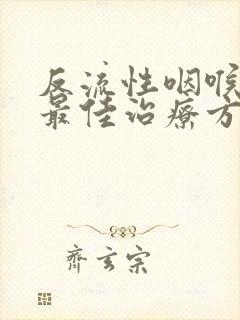 反流性咽喉
最佳治疗方
齐玄宗